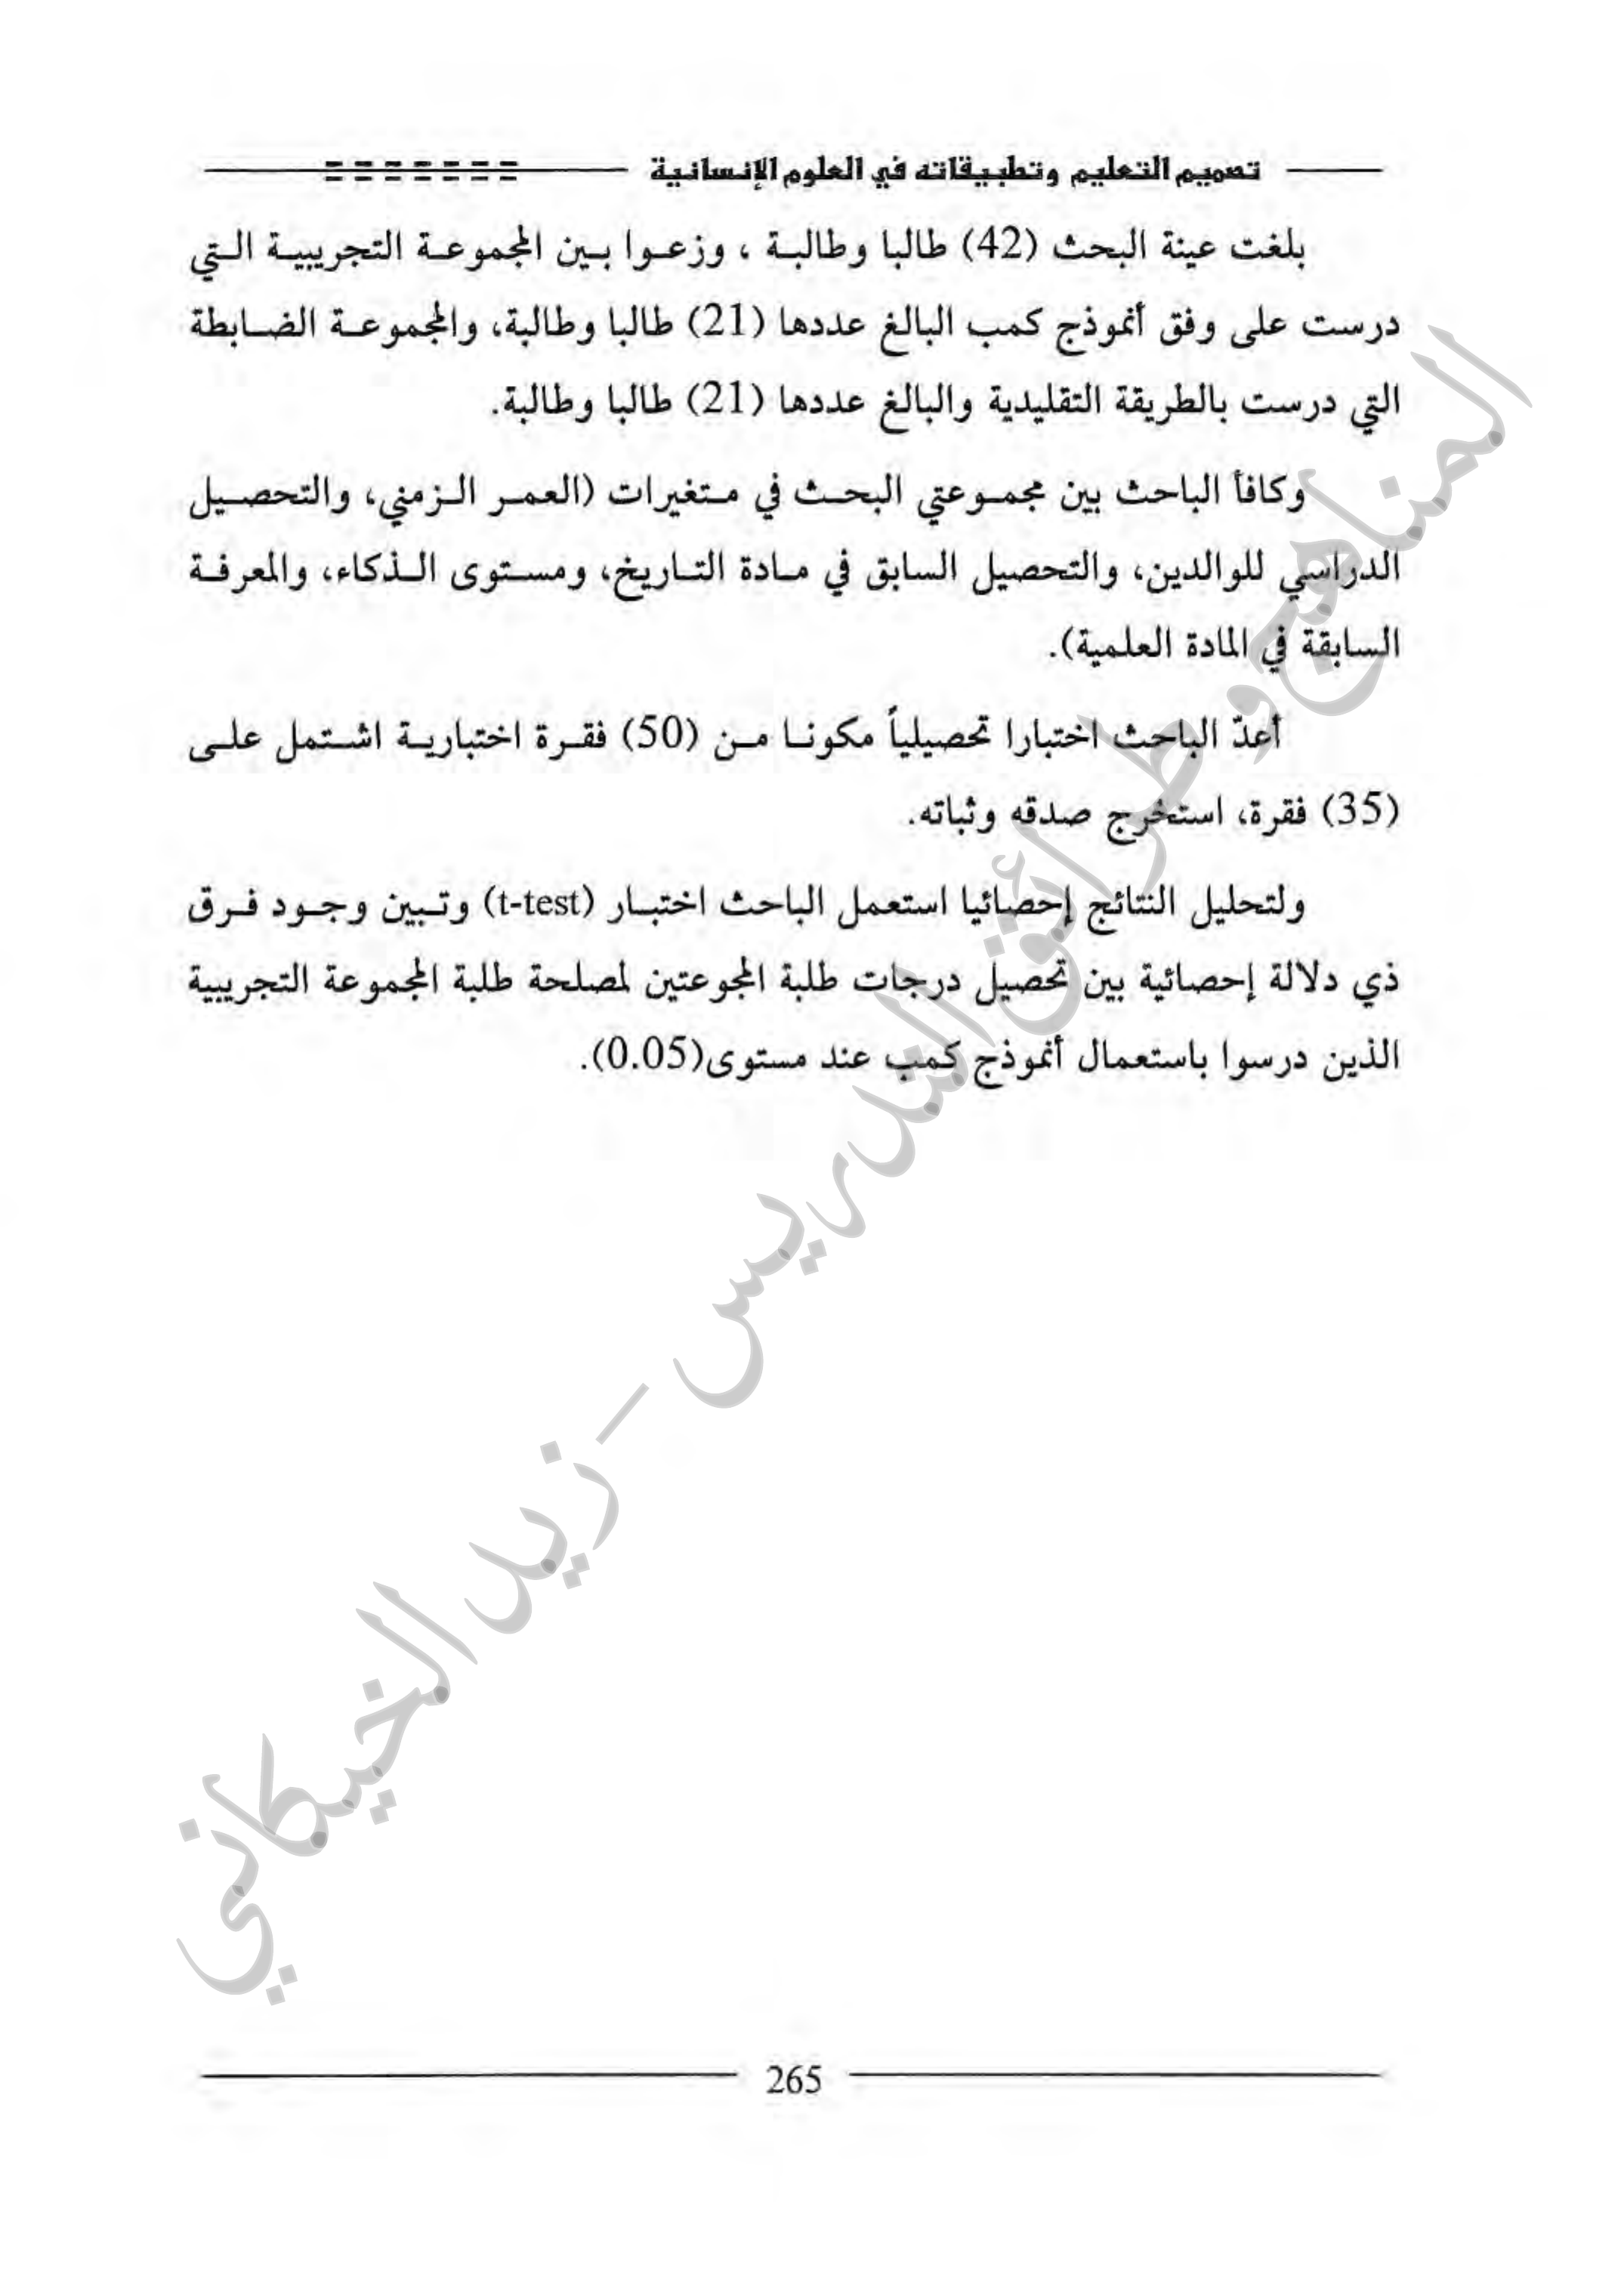 تصميم التعليم وتطبيقاته في العلوم الإنسانية
بلغت عينة البحث (42) طالبا وطالبة ، وزعوا بين المجموعة التجريبية التي
درست على وفق أنموذج كمب البالغ عددها (21) طالبا وطالبة، والمجموعة الضابطة
التي درست بالطريقة التقليدية والبالغ عددها (21) طالبا وطالبة.
وكافأ الباحث بين مجموعتي البحث في متغيرات (العمر الزمني، والتحصيل
الدراسي للوالدين، والتحصيل السابق في مادة التاريخ، ومستوى الذكاء، والمعرفة
السابقة في المادة العلمية).
أعدّ الباحث اختبارا تحصيلياً مكونا من (50) فقرة اختبارية اشتمل على
(35) فقرة، استخرج صدقه وثباته.
ولتحليل النتائج إحصائيا استعمل الباحث اختبار (t-test) وتبين وجود فرق
ذي دلالة إحصائية بين تحصيل درجات طلبة المجوعتين لمصلحة طلبة المجموعة التجريبية
الذين درسوا باستعمال أنموذج كمب عند مستوى(0.05).
المناهج وطرائق التدريس - زيد الخيكاني
265